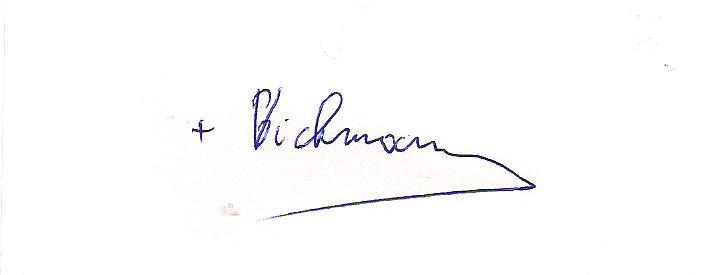 + Bichmann